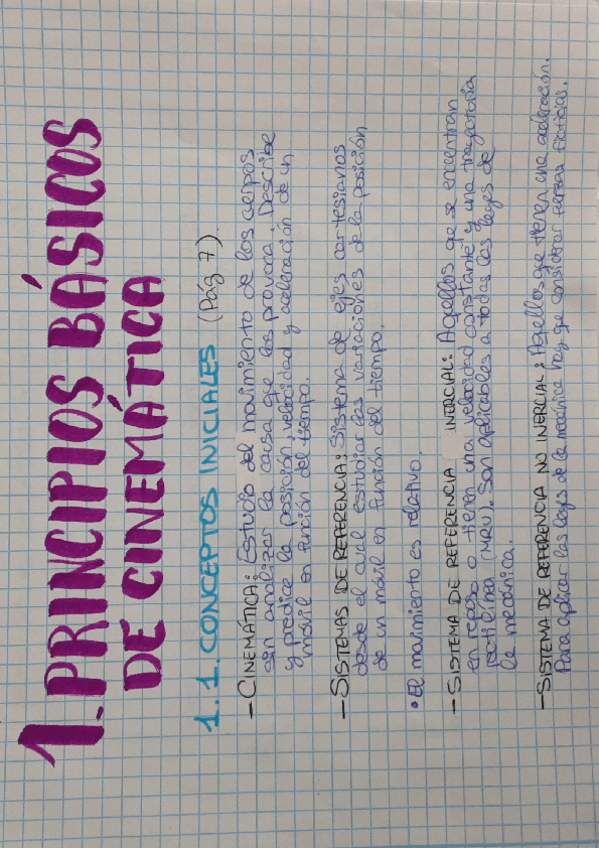 1. PRINCIPIOS BÁSICOS
DE CINEMÁTICA
1.1. CONCEPTOS INICIALES (Pág 7).
- CINEMÁTICA: Estudio del movimiento de los cuerpos
sin analizar la causa que los provoca. Describe
y predice la posición, velocidad y aceleración de un
móvil en función del tiempo.
- SISTEMAS DE REFERENCIA: Sistema de ejes cartesianos
desde el cual estudiar las variaciones de la posición
de un móvil en función del tiempo.
• El movimiento es relativo.
- SISTEMA DE REFERENCIA INERCIAL: Aquellos que se encuentran
en reposo o tienen una velocidad constante y una trayectoria
rectilínea (MRU). Son aplicables a todas las leyes de
la mecánica.
- SISTEMA DE REFERENCIA NO INERCIAL: Aquellos que tienen una aceleración.
Para aplicar las leyes de la mecánica hay que considerar fuerzas ficticias.